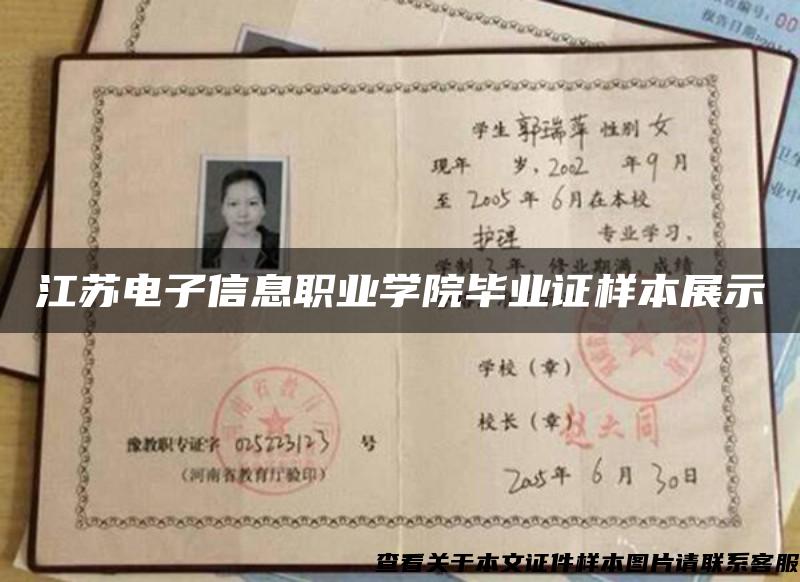 告编号：00
报告日期：201
学生 郭瑞萍 性别 女
现年 岁，2002 年 9 月
至 2005 年 6 月在本校
护理 专业学习，
学制 3 年，修业期满，成绩
江苏电子信息职业学院毕业证样本展示
学校（章）
校长（章）赵大同
豫教职专证字 025223123 号
（河南省教育厅验印）
2005 年 6 月 30 日
查看关于本文证件样本图片请联系客服